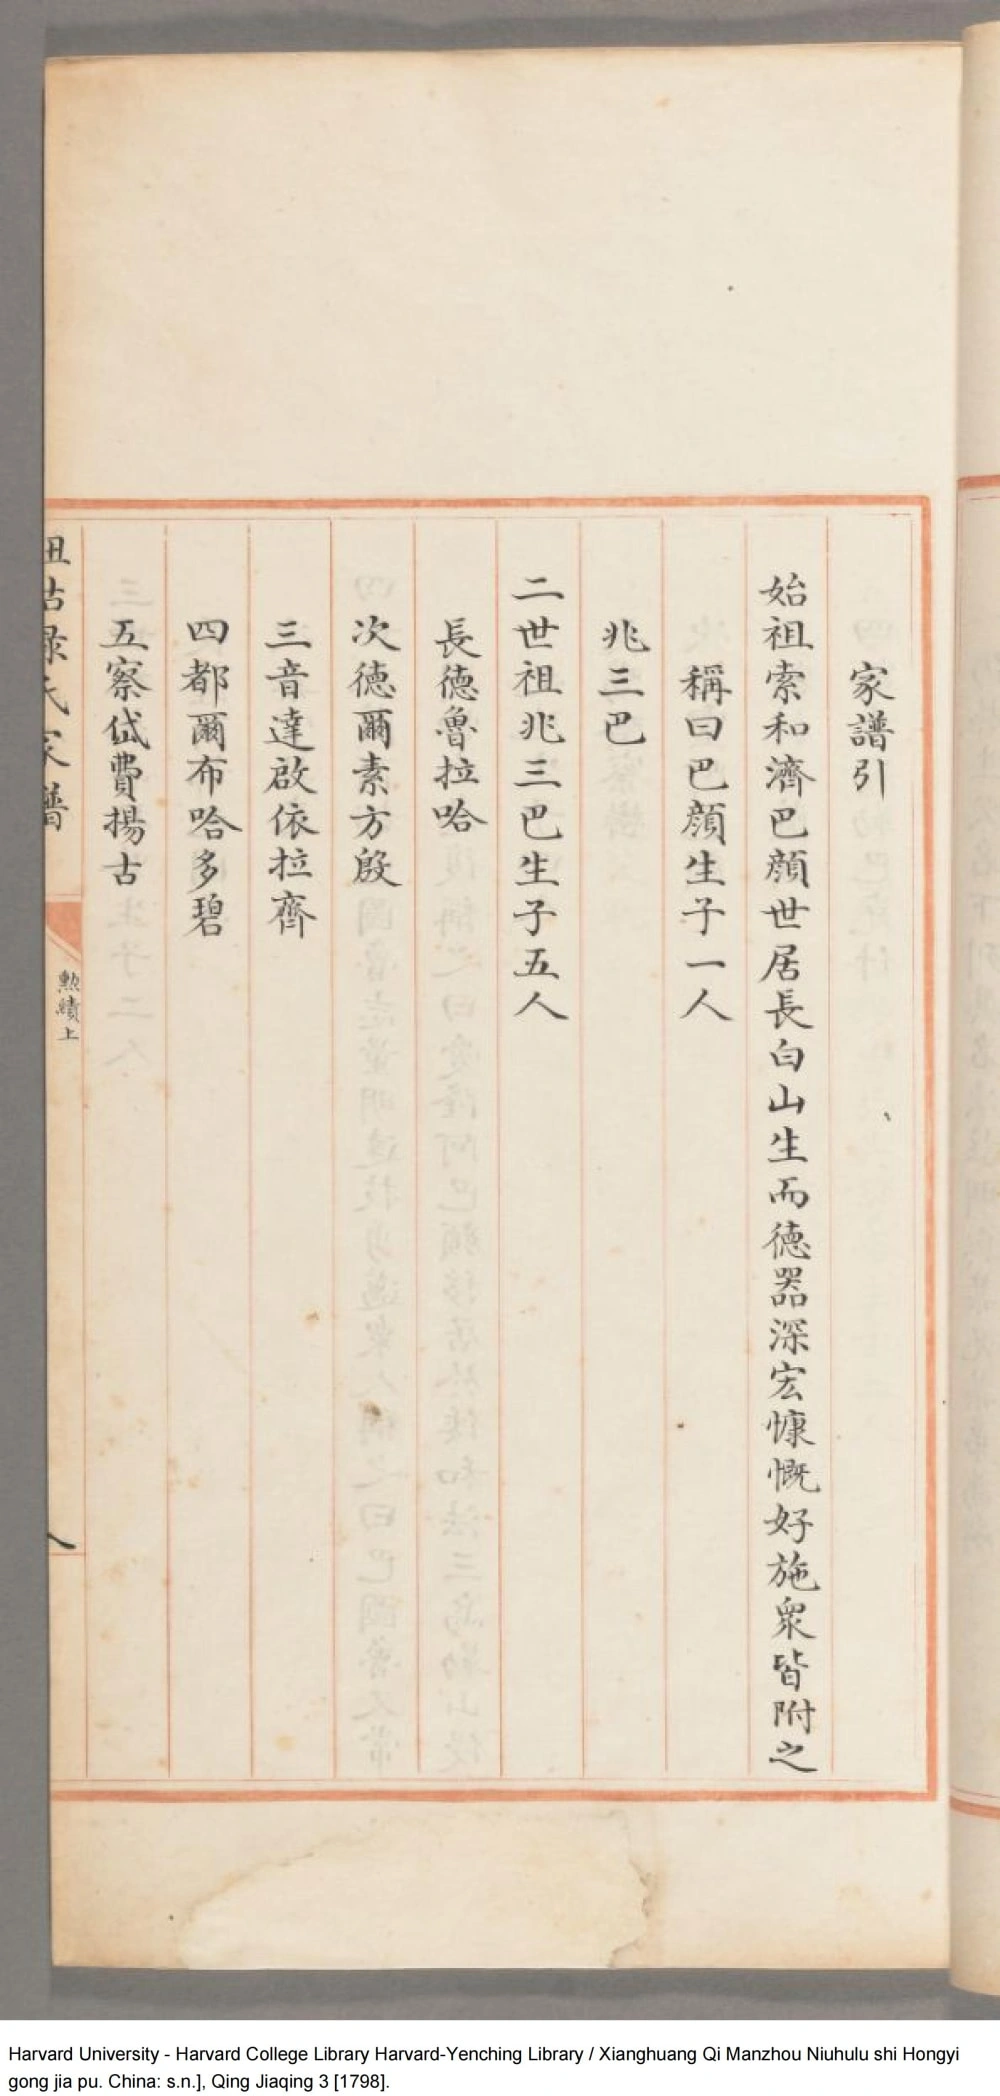 家譜引
始祖索和濟巴顔世居長白山生而德器深宏慷慨好施衆皆附之
稱曰巴顔生子一人
兆三巴
二世祖兆三巴生子五人
長德魯拉哈
次德爾素方殷
三音達啟依拉齊
四都爾布哈多碧
五察岱費揚古
鈕祜祿氏家譜
勲績上
八
Harvard University - Harvard College Library Harvard-Yenching Library / Xianghuang Qi Manzhou Niuhulu shi Hongyi
gong jia pu. China: s.n.], Qing Jiaqing 3 [1798].